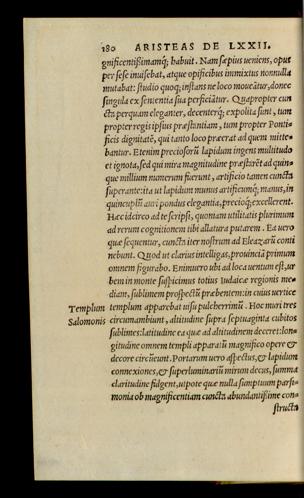 180 ARISTEAS DE LXXII.
gnificentißimamq; habuit. Nam sæpius ueniens, opus
per sese inuisebat, atque opificibus immixtus nonnulla
mutabat: studio quoq; instans ne loco moueātur, donec
singula ex sententia sua perficiātur. Quapropter cun
cta perquam eleganter, decenterq; expolita sunt, tum
propter regis ipsius præstantiam, tum propter Ponti-
ficis dignitatē, qui tanto loco præerat ad quem mitte-
bantur. Etenim preciosorū lapidum ingens multitudo
et ignota, sed qui mira magnitudine præstarēt ad quin-
que millium numerum fuerunt, artificio tamen cuncta
superante: ita ut lapidum munus artificumq; manus, in
quincuplū auri pondus elegantia, precioq; excellerent.
Hæc idcirco ad te scripsi, quoniam utilitatis plurimum
ad rerum cognitionem tibi allatura putarem. Ea uero
quæ sequuntur, cuncta iter nostrum ad Eleazarū conti
nebunt. Quod ut clarius intelligas, prouinciā primum
omnem figurabo. Enimuero ubi ad loca uentum est, ur
bem in monte suspicimus totius Iudaicæ regionis me-
diam, sublimem prospectū præbentem: in cuius uertice
Templum templum apparebat uisu pulcherrimū. Hoc muri tres
Salomonis circumambiunt, altitudine supra septuaginta cubitos
sublimes: latitudine ea quæ ad altitudinem deceret: lon-
gitudine omnem templi apparatū magnifico opere &
decore circūeunt. Portarum uero aspectus, & lapidum
connexiones, & superluminariū mirum decus, summa
claritudine fulgent, utpote quæ nulla sumptuum parsi-
monia ob magnificentiam cuncta abundantißime con-
structa